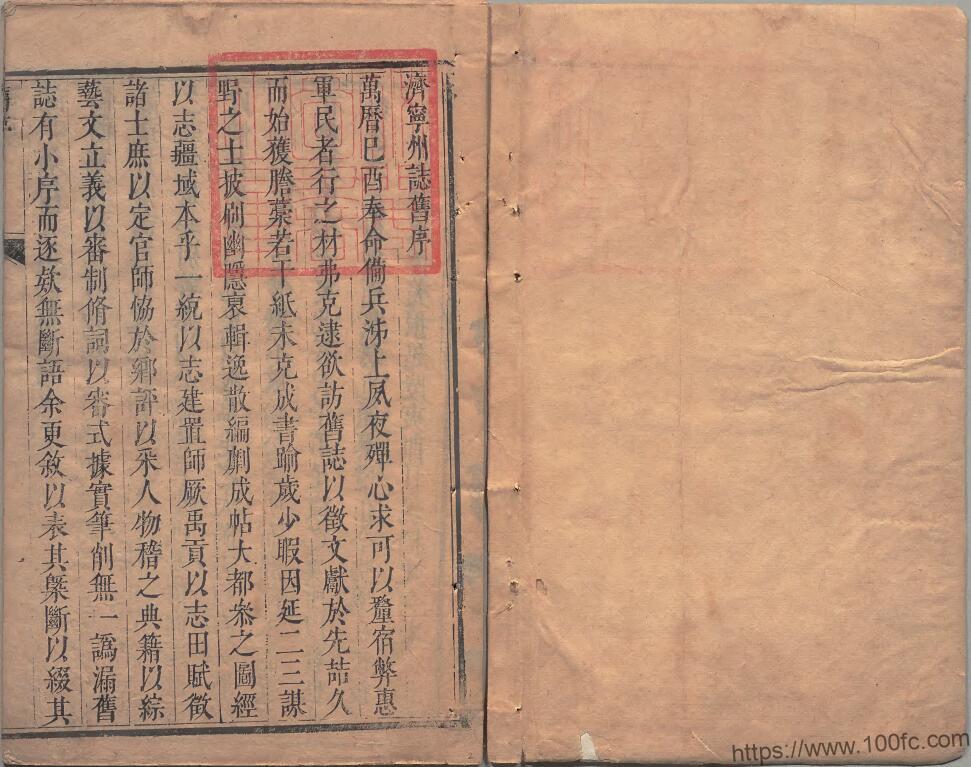 濟寧州誌舊序
萬曆己酉奉命備兵泲上夙夜殫心求可以釐宿弊惠
軍民者行之材弗克逮欲訪舊誌以徵文獻於先喆久
而始獲謄藁若干紙未克成書踰歲少暇因延二三謀
野之士披刷幽隱裒輯逸散編劘成帖大都叅之圖經
以志疆域本乎一統以志建置師厥禹貢以志田賦徵
諸士庶以定官師協於鄉評以采人物稽之典籍以綜
藝文立義以審制脩詞以審式據實筆削無一譌漏舊
誌有小序而逐欸無斷語余更敘以表其槩斷以綴其
https://www.100fc.com